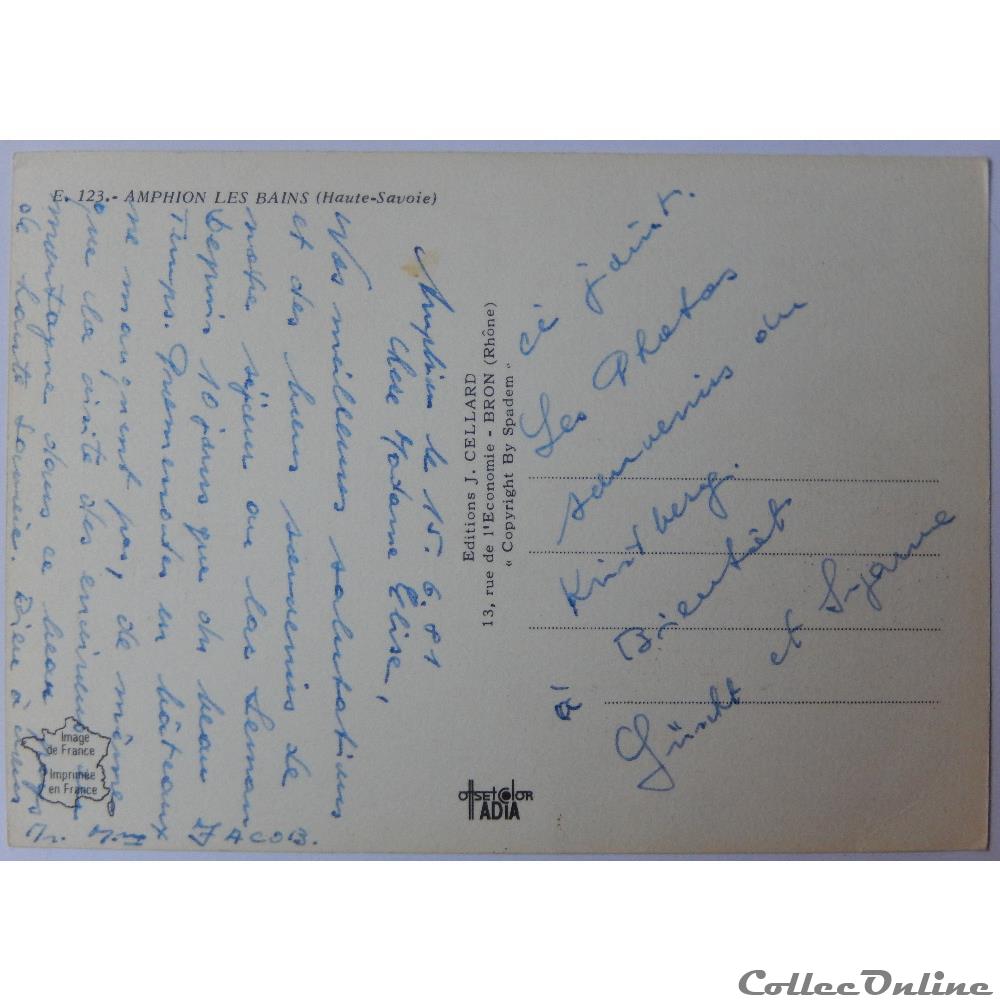 E. 123.- AMPHION LES BAINS (Haute-Savoie)
Amphion le 15.6.81
Chere Madame Elise,
Nos meilleures salutations
et des bons souvenirs de
notre séjour au lac Leman
Depuis 10 jours que du beau
Temps. Promenades en bâteaux
ne manquent pas, de même
que la visite des environs
montagne dans ce beau
de haute Savoie.
Mr. Mme JACOB.
Editions J. CELLARD
13, rue de l'Economie - BRON (Rhône)
« Copyright By Spadem »
ci joint.
Les Photos
souvenirs du
à Bientôt
et Suzanne
Image
de France
Imprimée
en France
OffsetColor
ADIA
CollecOnline